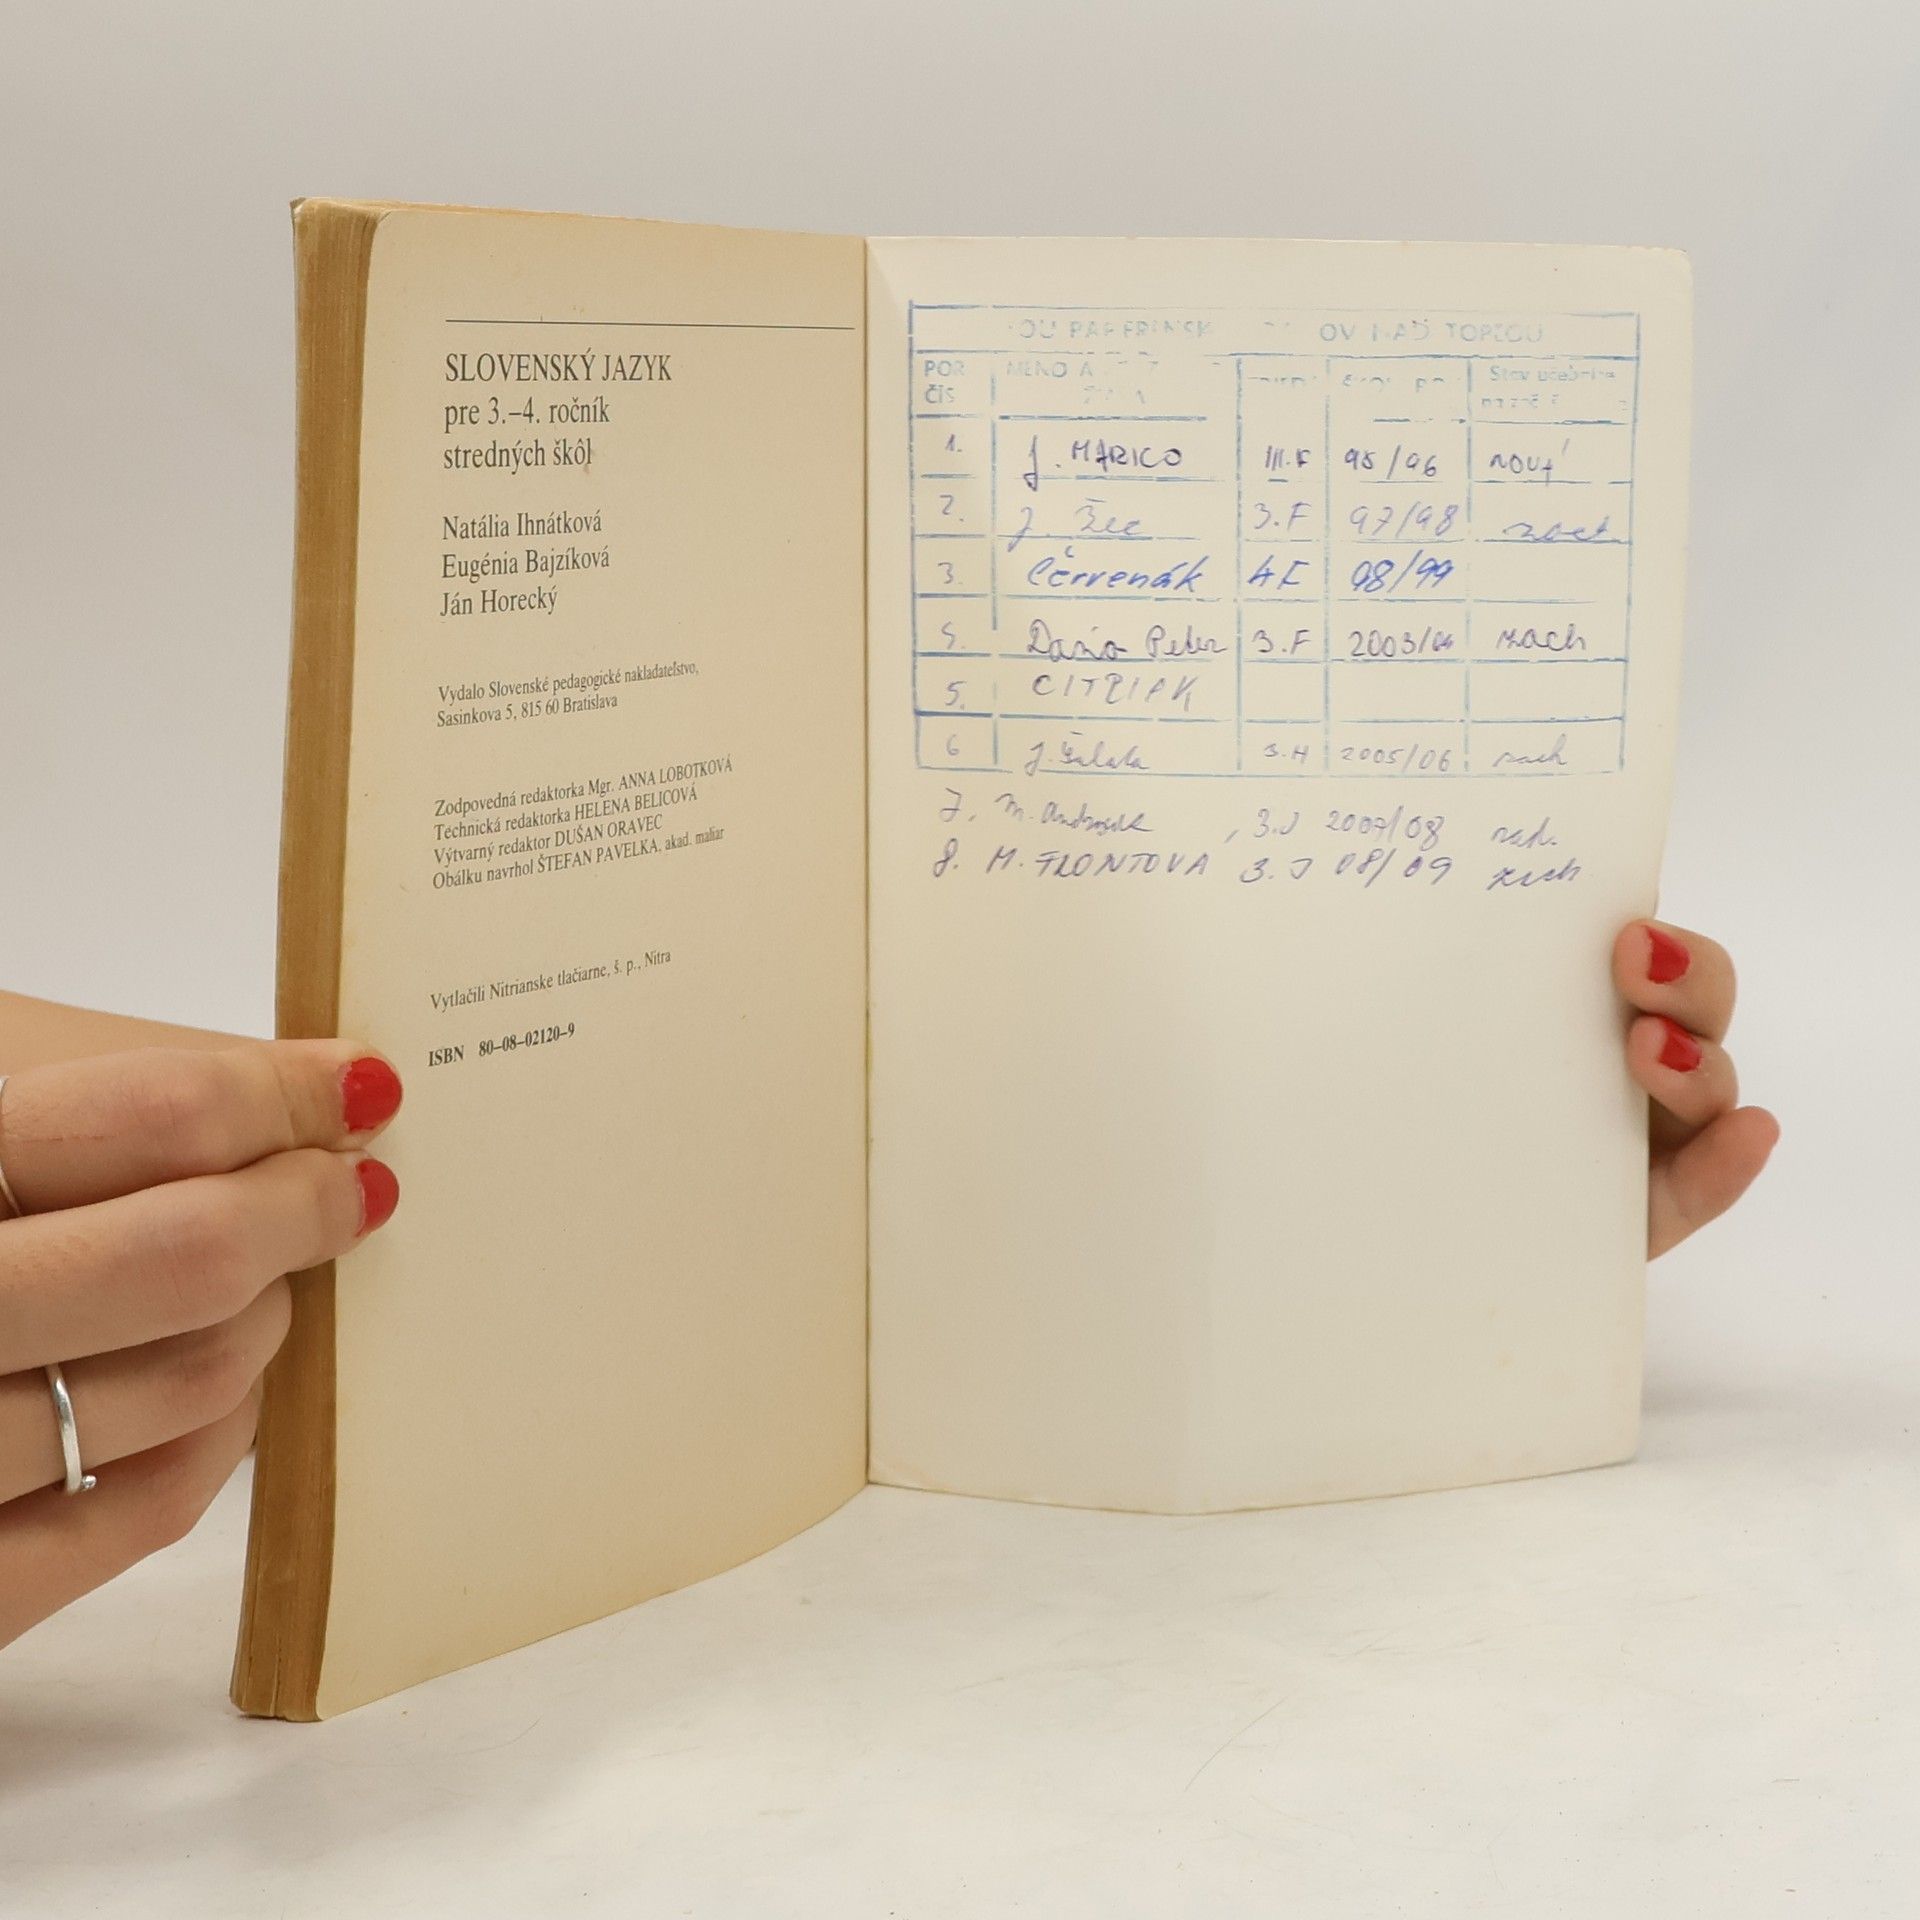 SLOVENSKÝ JAZYK
pre 3.–4. ročník
stredných škôl
Natália Ihnátková
Eugénia Bajzíková
Ján Horecký
Vydalo Slovenské pedagogické nakladateľstvo,
Sasinkova 5, 815 60 Bratislava
Zodpovedná redaktorka Mgr. ANNA LOBOTKOVÁ
Technická redaktorka HELENA BELICOVÁ
Výtvarný redaktor DUŠAN ORAVEC
Obálku navrhol ŠTEFAN PAVELKA, akad. maliar
Vytlačili Nitrianske tlačiarne, š. p., Nitra
ISBN 80–08–02120–9
OV NAD TOPĽOU
POR MENO A Stav učebnice
čís
1. J. MARICO III.F 95/96 nová
2. J. 3.F 97/98 zach
3. Červenák 4F 98/99
5. Peter 3.F 2003/04 zach
5.
6 J. 3.H 2005/06 zach
7. M. 3.J 2007/08 zach.
8. M. FRONTOVA 3.J 08/09 zach